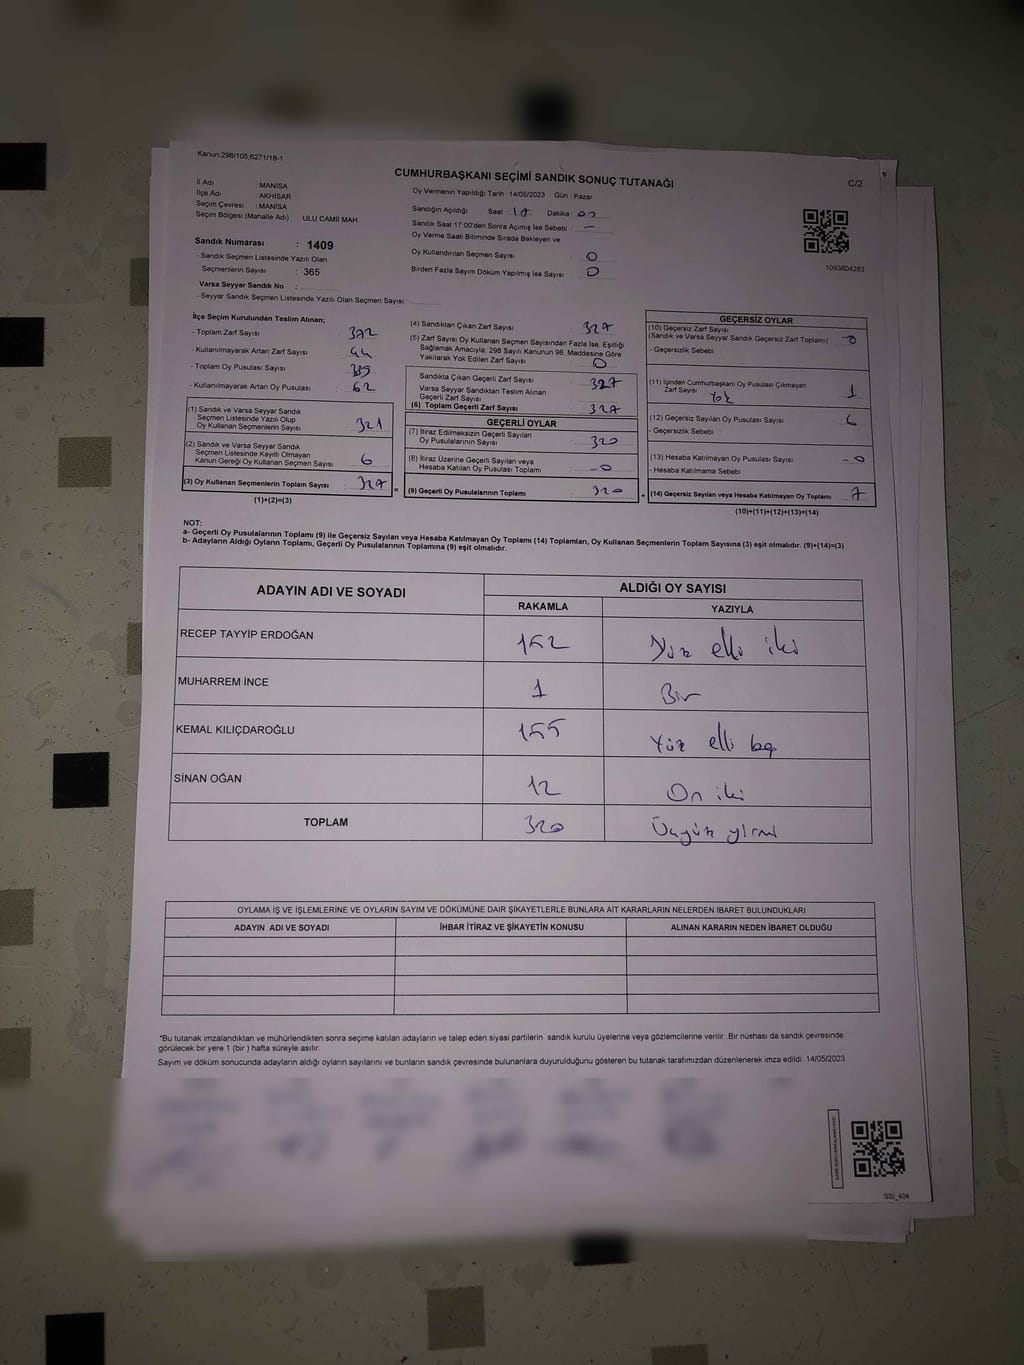 Kanun;298/105;6271/18-1
CUMHURBAŞKANI SEÇİMİ SANDIK SONUÇ TUTANAĞI
C/2
İl Adı : MANİSA
İlçe Adı : AKHİSAR
Seçim Çevresi : MANİSA
Seçim Bölgesi (Mahalle Adı) : ULU CAMİİ MAH.
Oy Vermenin Yapıldığı Tarih : 14/05/2023 Gün : Pazar
Sandığın Açıldığı Saat : 17 Dakika 00
Sandık Saat 17:00'den Sonra Açımış İse Sebebi : -
Oy Verme Saati Bitiminde Sırada Bekleyen ve
Oy Kullandırılan Seçmen Sayısı : 0
Birden Fazla Sayım Döküm Yapılmış İse Sayısı : 0
1093804283
Sandık Numarası : 1409
- Sandık Seçmen Listesinde Yazılı Olan
Seçmenlerin Sayısı : 365
Varsa Seyyar Sandık No :
- Seyyar Sandık Seçmen Listesinde Yazılı Olan Seçmen Sayısı:
İlçe Seçim Kurulundan Teslim Alınan;
- Toplam Zarf Sayısı : 372
- Kullanılmayarak Artan Zarf Sayısı : 44
- Toplam Oy Pusulası Sayısı : 385
- Kullanılmayarak Artan Oy Pusulası : 62
(1) Sandık ve Varsa Seyyar Sandık
Seçmen Listesinde Yazılı Olup
Oy Kullanan Seçmenlerin Sayısı : 321
(2) Sandık ve Varsa Seyyar Sandık
Seçmen Listesinde Kayıtlı Olmayan
Kanun Gereği Oy Kullanan Seçmen Sayısı : 6
(3) Oy Kullanan Seçmenlerin Toplam Sayısı : 327
(1)+(2)=(3)
(4) Sandıktan Çıkan Zarf Sayısı : 327
(5) Zarf Sayısı Oy Kullanan Seçmen Sayısından Fazla İse, Eşitliği
Sağlamak Amacıyla; 298 Sayılı Kanunun 98. Maddesine Göre
Yakılarak Yok Edilen Zarf Sayısı : 0
Sandıkta Çıkan Geçerli Zarf Sayısı : 327
Varsa Seyyar Sandıktan Teslim Alınan
Geçerli Zarf Sayısı
(6) Toplam Geçerli Zarf Sayısı : 327
GEÇERLİ OYLAR
(7) İtiraz Edilmeksizin Geçerli Sayılan
Oy Pusulalarının Sayısı : 320
(8) İtiraz Üzerine Geçerli Sayılan veya
Hesaba Katılan Oy Pusulası Toplamı : -0
= (9) Geçerli Oy Pusulalarının Toplamı : 320 +
GEÇERSİZ OYLAR
(10) Geçersiz Zarf Sayısı
(Sandık ve Varsa Seyyar Sandık Geçersiz Zarf Toplamı) : 0
- Geçersizlik Sebebi :
(11) İçinden Cumhurbaşkanı Oy Pusulası Çıkmayan
Zarf Sayısı Yok 1
(12) Geçersiz Sayılan Oy Pusulası Sayısı : 6
- Geçersizlik Sebebi :
(13) Hesaba Katılmayan Oy Pusulası Sayısı : -0
- Hesaba Katılmama Sebebi :
(14) Geçersiz Sayılan veya Hesaba Katılmayan Oy Toplamı : 7
(10)+(11)+(12)+(13)=(14)
NOT:
a- Geçerli Oy Pusulalarının Toplamı (9) ile Geçersiz Sayılan veya Hesaba Katılmayan Oy Toplamı (14) Toplamları, Oy Kullanan Seçmenlerin Toplam Sayısına (3) eşit olmalıdır. (9)+(14)=(3)
b- Adayların Aldığı Oyların Toplamı, Geçerli Oy Pusulalarının Toplamına (9) eşit olmalıdır.
ADAYIN ADI VE SOYADI ALDIĞI OY SAYISI
RAKAMLA YAZIYLA
RECEP TAYYİP ERDOĞAN 152 Yüz elli iki
MUHARREM İNCE 1 Bir
KEMAL KILIÇDAROĞLU 155 Yüz elli beş
SİNAN OĞAN 12 On iki
TOPLAM 320 Üçyüz yirmi
OYLAMA İŞ VE İŞLEMLERİNE VE OYLARIN SAYIM VE DÖKÜMÜNE DAİR ŞİKAYETLERLE BUNLARA AİT KARARLARIN NELERDEN İBARET BULUNDUKLARI
ADAYIN ADI VE SOYADI İHBAR İTİRAZ VE ŞİKAYETİN KONUSU ALINAN KARARIN NEDEN İBARET OLDUĞU
*Bu tutanak imzalandıktan ve mühürlendikten sonra seçime katılan adayların ve talep eden siyasi partilerin sandık kurulu üyelerine veya gözlemcilerine verilir. Bir nüshası da sandık çevresinde
görülecek bir yere 1 (bir ) hafta süreyle asılır.
Sayım ve döküm sonucunda adayların aldığı oyların sayılarını ve bunların sandık çevresinde bulunanlara duyurulduğunu gösteren bu tutanak tarafımızdan düzenlenerek imza edildi. 14/05/2023
SSI_404